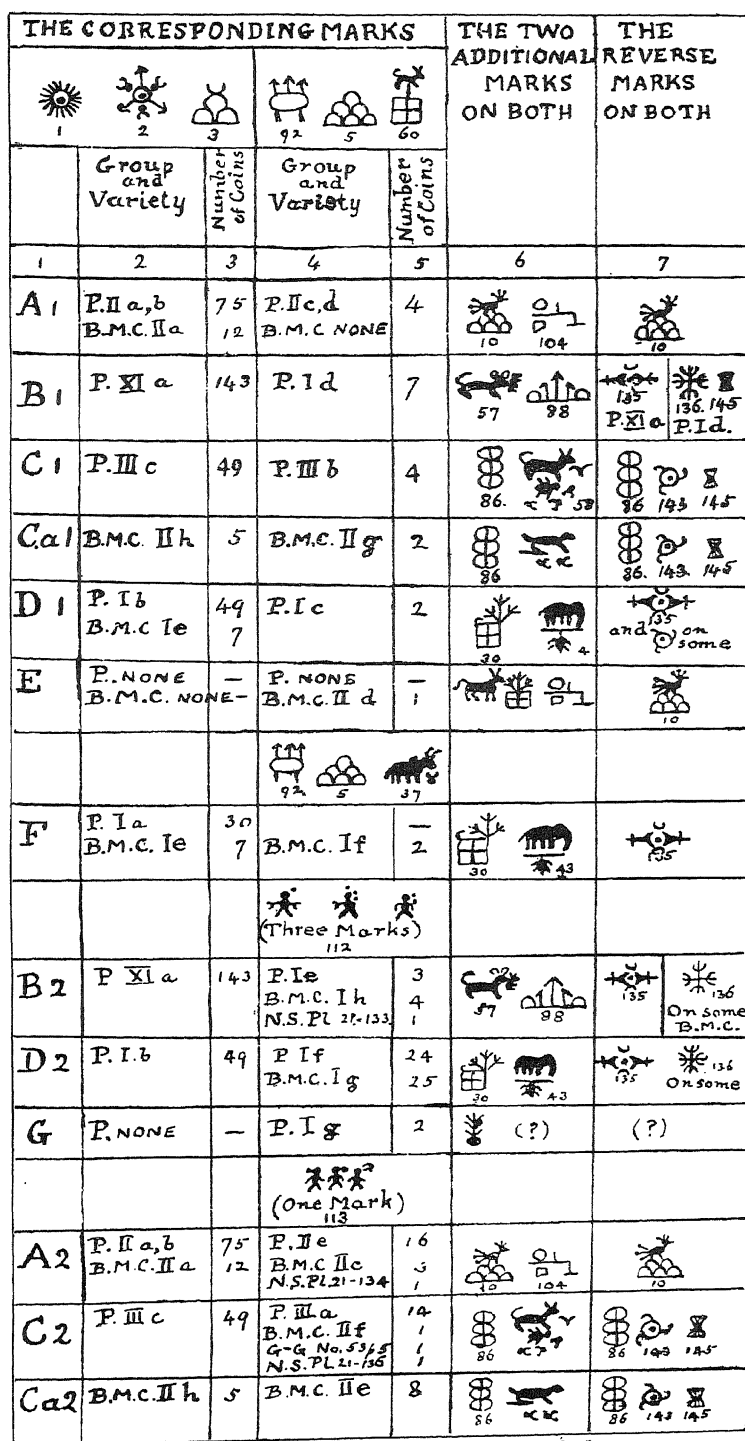 THE CORRESPONDING MARKS
THE TWO ADDITIONAL MARKS ON BOTH
THE REVERSE MARKS ON BOTH
1 2 3 92 5 60
Group and Variety
Number of Coins
Group and Variety
Number of Coins
1 2 3 4 5 6 7
A1 P.IIa,b 75 P.IIc,d 4
B.M.C.IIa 12 B.M.C NONE
10 104 10
B1 P. XI a 143 P. Id 7
57 88 135 136. 145
P.XI a P.Id.
C1 P.III c 49 P.III b 4
86. 58 86 143 145
Ca1 B.M.C. II h 5 B.M.C. II g 2
86 86. 143. 145
D1 P. Ib 49 P.Ic 2
B.M.C Ie 7
30 4 135
and on some
E P. NONE — P. NONE —
B.M.C. NONE - B.M.C. II d 1
10
92 5 37
F P. Ia 30 —
B.M.C. Ie 7 B.M.C. If 2
30 43 135
(Three Marks)
112
B2 P XI a 143 P.Ie 3
B.M.C. Ih 4
N.S.Pl 21-133 1
57 88 135 136
On some B.M.C.
D2 P. I.b 49 P If 24
B.M.C. Ig 25
30 43 135 136
On some
G P. NONE — P. I g 2 (?) (?)
(One Mark)
113
A2 P. II a,b 75 P. IIe 16
B.M.C.IIa 12 B.M.C IIc
N.S.Pl.21-134 1
10 104 10
C2 P. III c 49 P. IIIa 14
B.M.C. IIf 1
G-G No. 1
N.S. PL 21-135 1
86 86 143 145
Ca2 B.M.C.II h 5 B.M.C. IIe 8
86 86 143 145